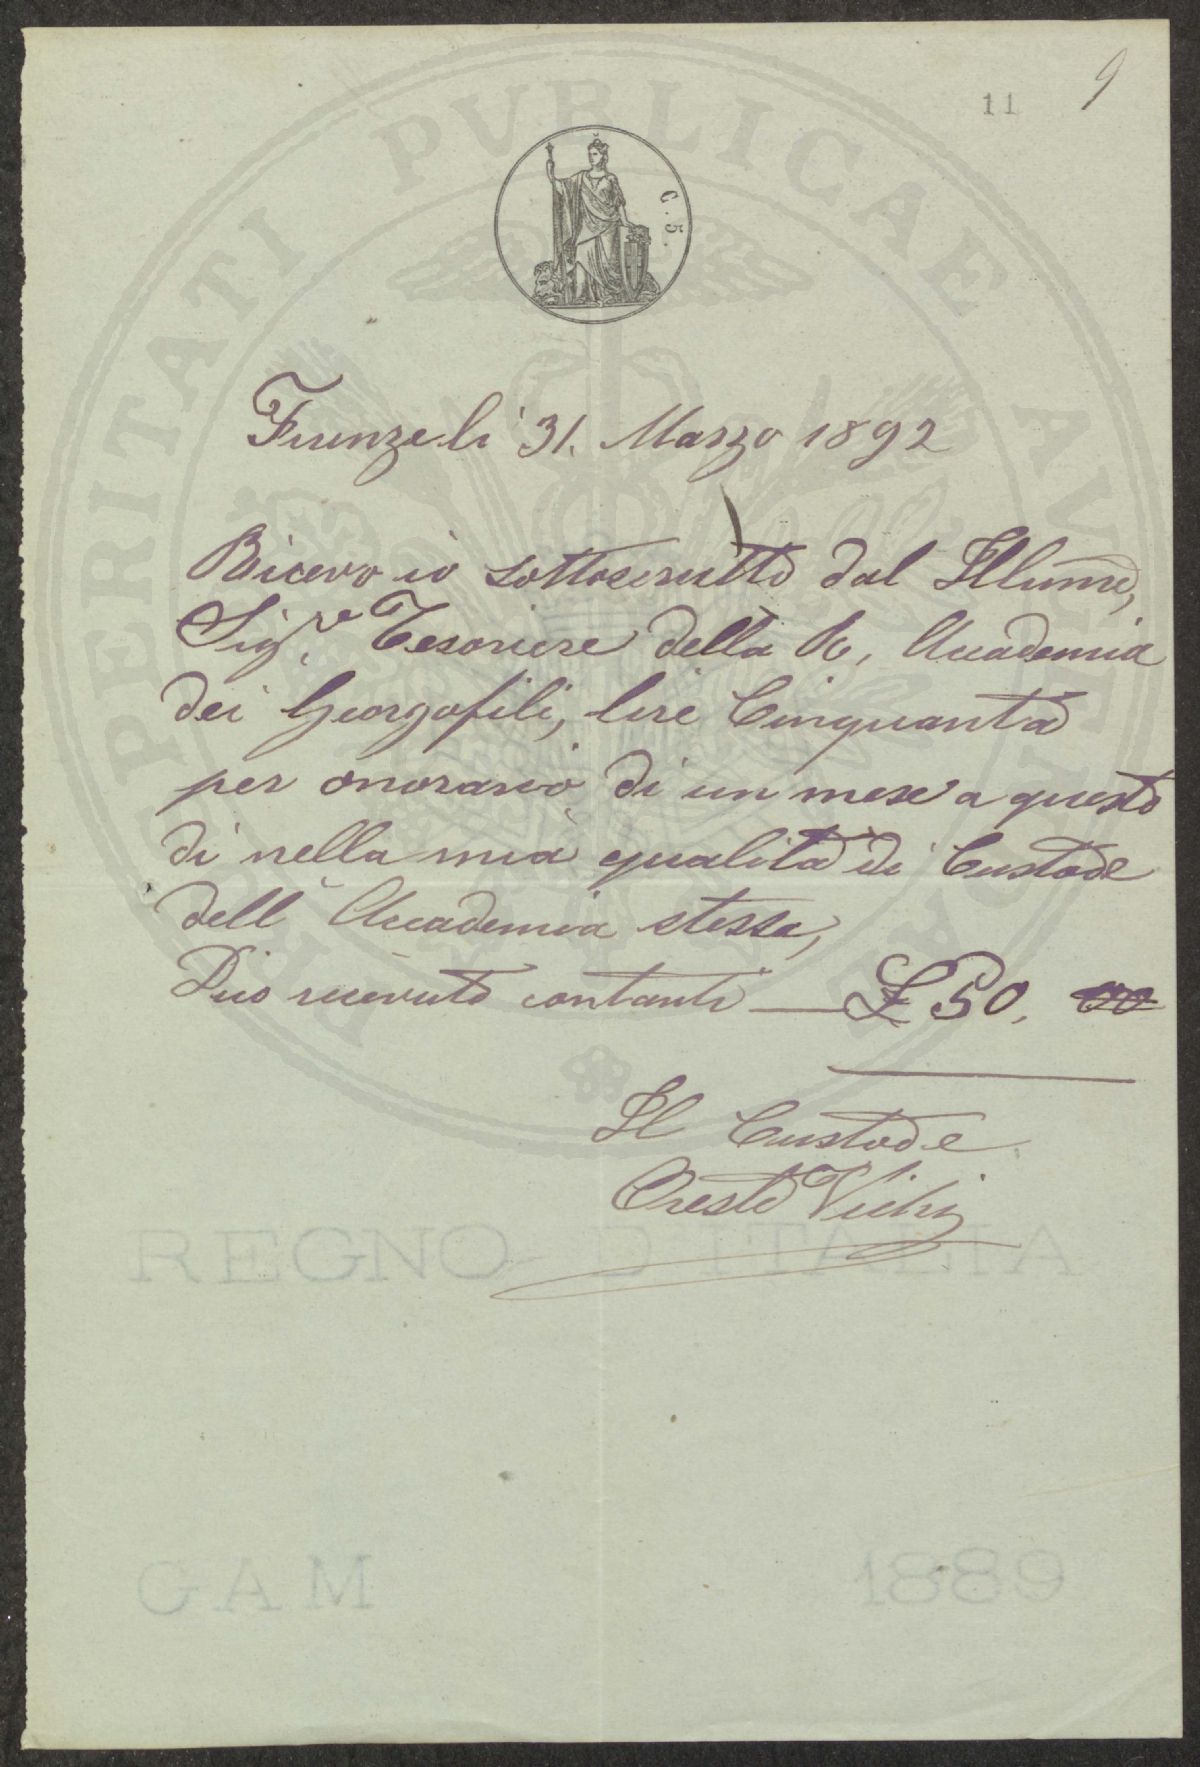 11 9
C. 5.
PROSPERITATI PVBLICAE AVGENDAE
Firenze li 31. Marzo 1892
Ricevo io sottoscritto dal Illumo,
Sigre. Tesoriere della R, Accademia
dei Georgofili, lire Cinquanta
per onorario di un mese a questo
dì nella mia qualità di Custode
dell'Accademia stessa,
Dico ricevuto contanti — £ 50, 00
Il Custode
Oreste Vichi
REGNO D'ITALIA
GAM 1889